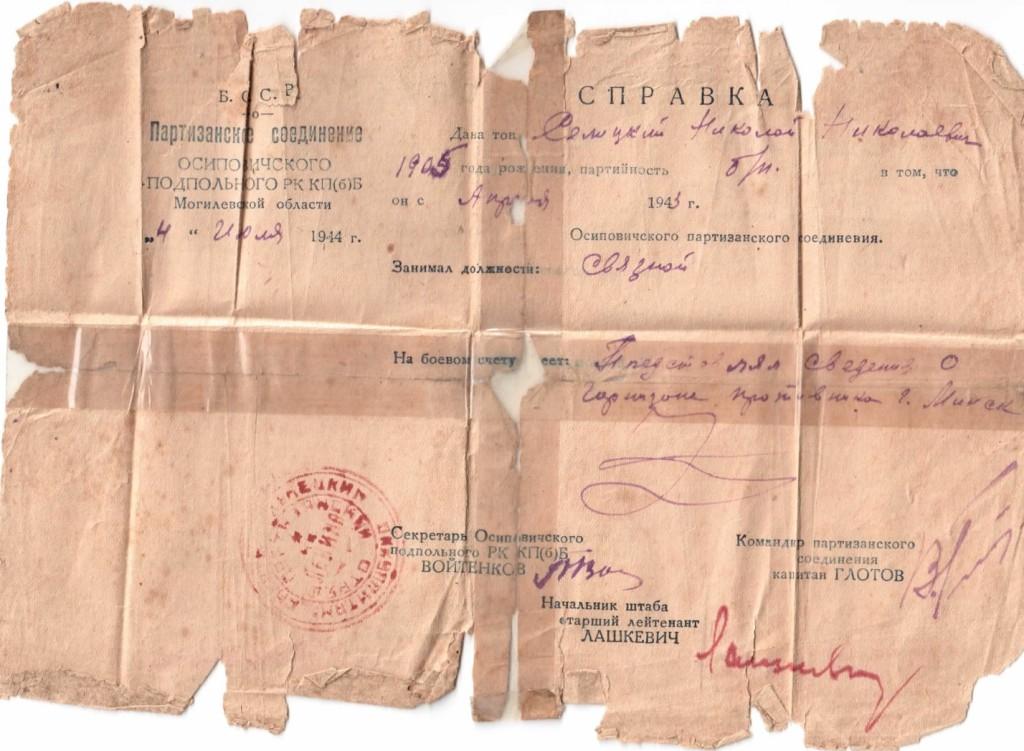 Б. С С. Р
—о—
Партизанское соединение
ОСИПОВИЧСКОГО
ПОДПОЛЬНОГО РК КП(б)Б
Могилевской области
„4 “ Июля 1944 г.
СПРАВКА
Дана тов. Николай Николаевич
1905 года рождения, партийность б/п. в том, что
он с Апреля 1943 г.
Осиповичского партизанского соединения.
Занимал должности: связной
На боевом счету имеет: Представлял сведения о
гарнизоне противника г. Минск
Секретарь Осиповичского
подпольного РК КП(б)Б
ВОЙТЕНКОВ
Командир партизанского
соединения
капитан ГЛОТОВ
Начальник штаба
старший лейтенант
ЛАШКЕВИЧ
Лашкевич